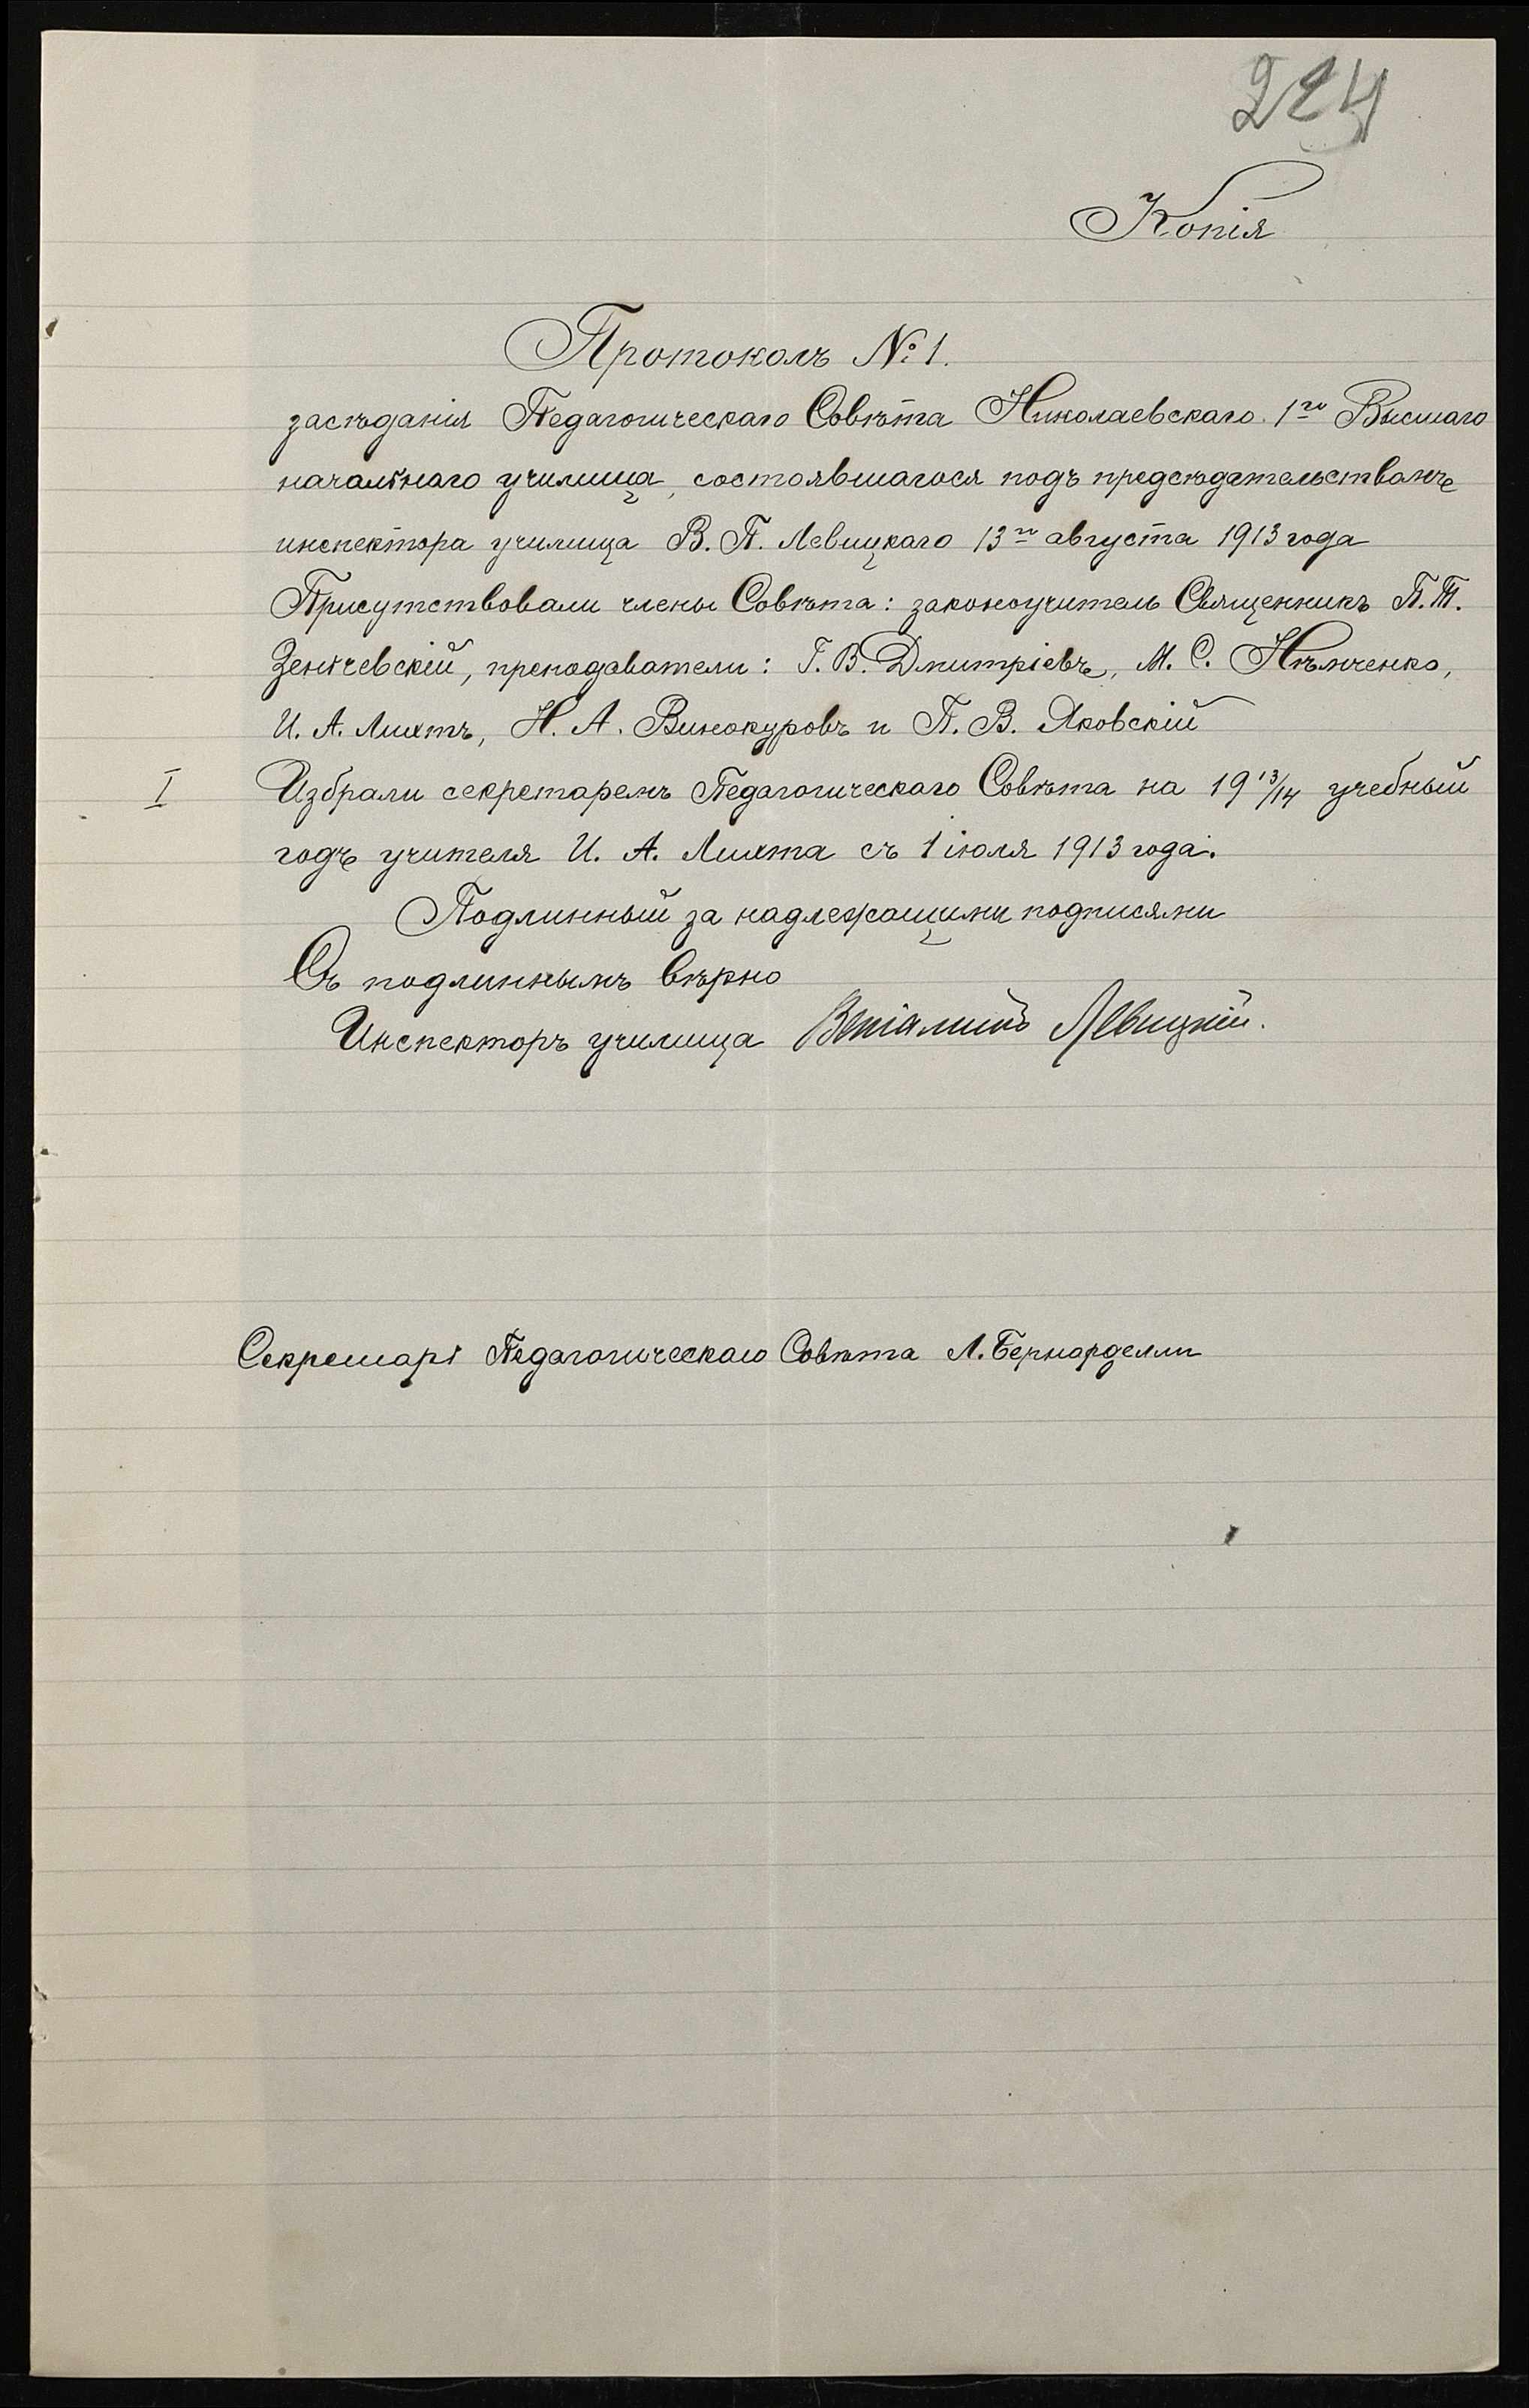 224
Копія
Протоколъ № 1.
засѣданія Педагогическаго Совѣта Николаевскаго 1го Высшаго
начальнаго училища, состоявшагося подъ предсѣдательствомъ
инспектора училища В. П. Левицкаго 13го августа 1913 года
Присутствовали члены Совѣта: законоучитель Священникъ П. Т.
Зенкевскій, преподаватели: Г. В. Дмитріевъ, М. С. Нѣмченко,
И. А. Лихтъ, Н. А. Винокуровъ и П. В. Яковскій
I Избрали секретаремъ Педагогическаго Совѣта на 1913/14 учебный
годъ учителя И. А. Лихта съ 1 іюля 1913 года.
Подлинный за надлежащими подписями
Съ подлиннымъ вѣрно
Инспекторъ училища Веніаминъ Левицкій.
Секретарь Педагогическаго Совѣта Л. Бернарделли